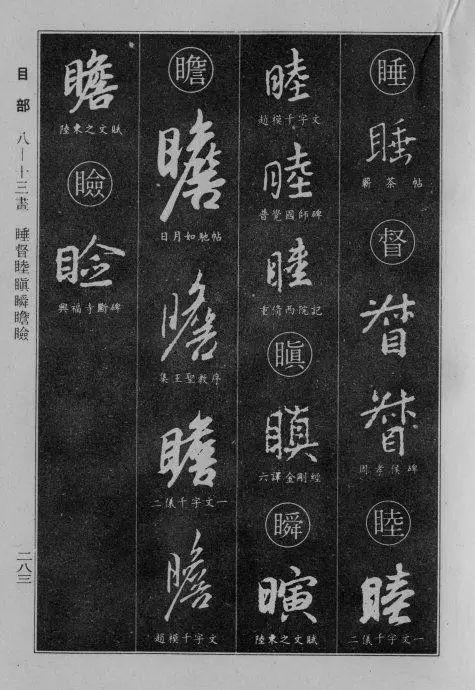 睡
睡
蘄茶帖
督
督
督
周孝侯碑
睦
睦
二儀千字文一
睦
趙模千字文
睦
普覺國師碑
睦
重脩西院記
瞋
瞋
六譯金剛經
瞬
瞬
陸柬之文賦
瞻
瞻
日月如馳帖
瞻
集王聖教序
瞻
二儀千字文一
瞻
趙模千字文
瞻
陸柬之文賦
瞼
瞼
興福寺斷碑
目部 八—十三畫 睡督睦瞋瞬瞻瞼
二八三